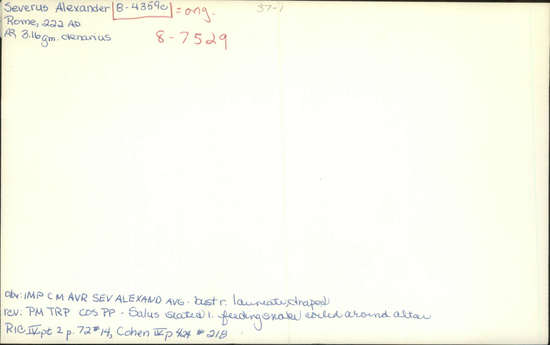 Severus Alexander 8-4359c = orig. 37-1
Rome, 222 AD
AR 3.16gm. denarius 8-7529
obv: IMP C M AVR SEV ALEXAND AVG - bust r. laureate, draped
rev. PM TRP COS PP - Salus seated l. feeding snake coiled around altar
RIC IV pt 2 p. 72 #14, Cohen IV p 424 # 218